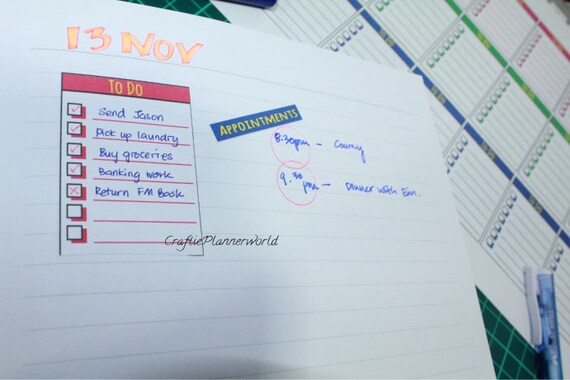 13 NOV
TO DO
Send Jason
Pick up laundry
Buy groceries
Banking work
Return FM Book
APPOINTMENTS
8.30pm –
9.30 pm – Dinner with
CraftiePlannerworld